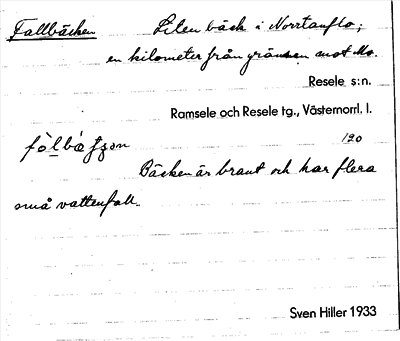 Fallbäcken Liten bäck i Norrtanflo,
en kilometer från gränsen mot Mo.
Resele s:n.
Ramsele och Resele tg., Västernorrl. l.
120
Bäcken är brant och har flera
små vattenfall.
Sven Hiller 1933